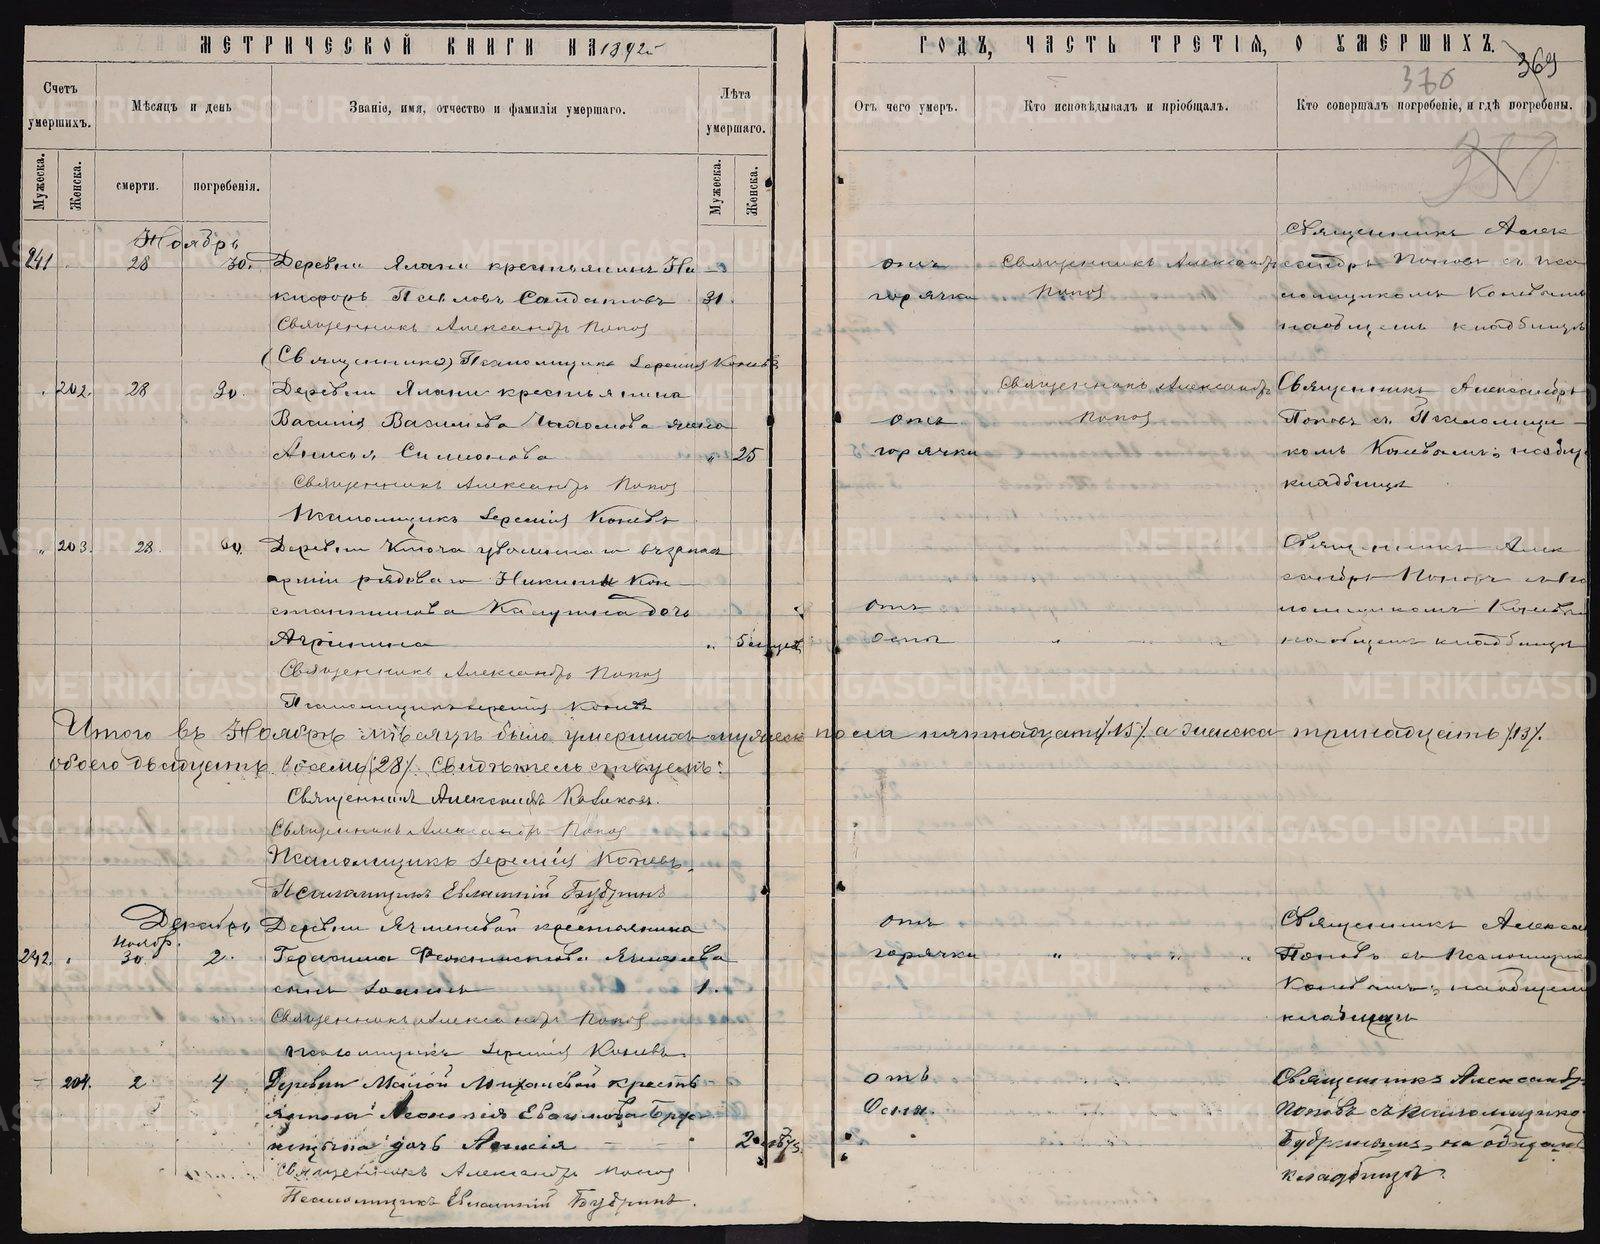 МЕТРИЧЕСКОЙ КНИГИ НА 1892
ГОДЪ, ЧАСТЬ ТРЕТІЯ, О УМЕРШИХЪ.
369
376
350
Счетъ умершихъ.
Мѣсяцъ и день
Званіе, имя, отчество и фамилія умершаго.
Лѣта умершаго.
Отъ чего умеръ.
Кто исповѣдывалъ и пріобщалъ.
Кто совершалъ погребеніе, и гдѣ погребены.
Мужеска.
Женска.
смерти.
погребенія.
Мужеска.
Женска.
Ноябрь
241 28 30. Деревни Ялани крестьянинъ Ни-
кифоръ Павловъ Солдатовъ 31.
Священникъ Александръ Попов
(Священника) Псаломщикъ Іеремія Коневъ
отъ
горячки
Священникъ Александръ
Попов
Священникъ Алек
сандръ Поповъ съ пса
ломщикомъ Коневымъ
на общемъ кладбищѣ
„ 202. 28 30. Деревни Ялани крестьянина
Василія Васильева жена
Анисья Симионова „ 25
Священникъ Александръ Попов
Псаломщикъ Іеремія Коневъ
отъ
горячки
Священникъ Александръ
Попов
Священникъ Александръ
Поповъ съ Псаломщи-
комъ Коневымъ; на общ
кладбищѣ
„ 203. 28. 30. Деревни Ключа уволеннаго въ запас
арміи рядоваго Никиты Кон-
стантинова Калугина дочь
Агрипина „ 5 месяц.
Священникъ Александръ Попов
Псаломщикъ Іеремія Коневъ
отъ
оспы „ „ „
Священникъ Алек
сандръ Поповъ съ Пса
ломщикомъ Коневым
на общемъ кладбищѣ
Итого въ Ноябрѣ мѣсяцѣ было умершихъ мужеска пола пятнадцать /15/ а женска тринадцать /13/.
обоего двадцать восемь /28/. Свидѣтельствуемъ:
Священникъ Александръ
Священникъ Александръ Попов
Псаломщикъ Іеремія Коневъ.
Псаломщикъ Евлампій Бубринъ
Декабрь
Деревни Ячменевой крестьянина
Ноябр.
242. „ 30. 2. Герасима Феоктистова Ячменева
сынъ Іоаннъ 1.
Священникъ Александръ Попов
Псаломщикъ Іеремія Коневъ.
отъ
горячки „ „ „
Священникъ Алексан
Поповъ съ Псаломщико
Коневымъ; на общем
кладбищѣ
– 204. 2 4 Деревни Малой Михалевой кресть-
янина Леонтія Евдокимова Брус-
ницына дочь Анисія 2
Священникъ Александръ Попов
Псаломщикъ Евлампій Бубринъ.
Отъ
Оспы.
Священникъ Александръ
Поповъ съ Псаломщико-
Бубринымъ, на общемъ
кладбищѣ.
METRIKI.GASO-URAL.RU